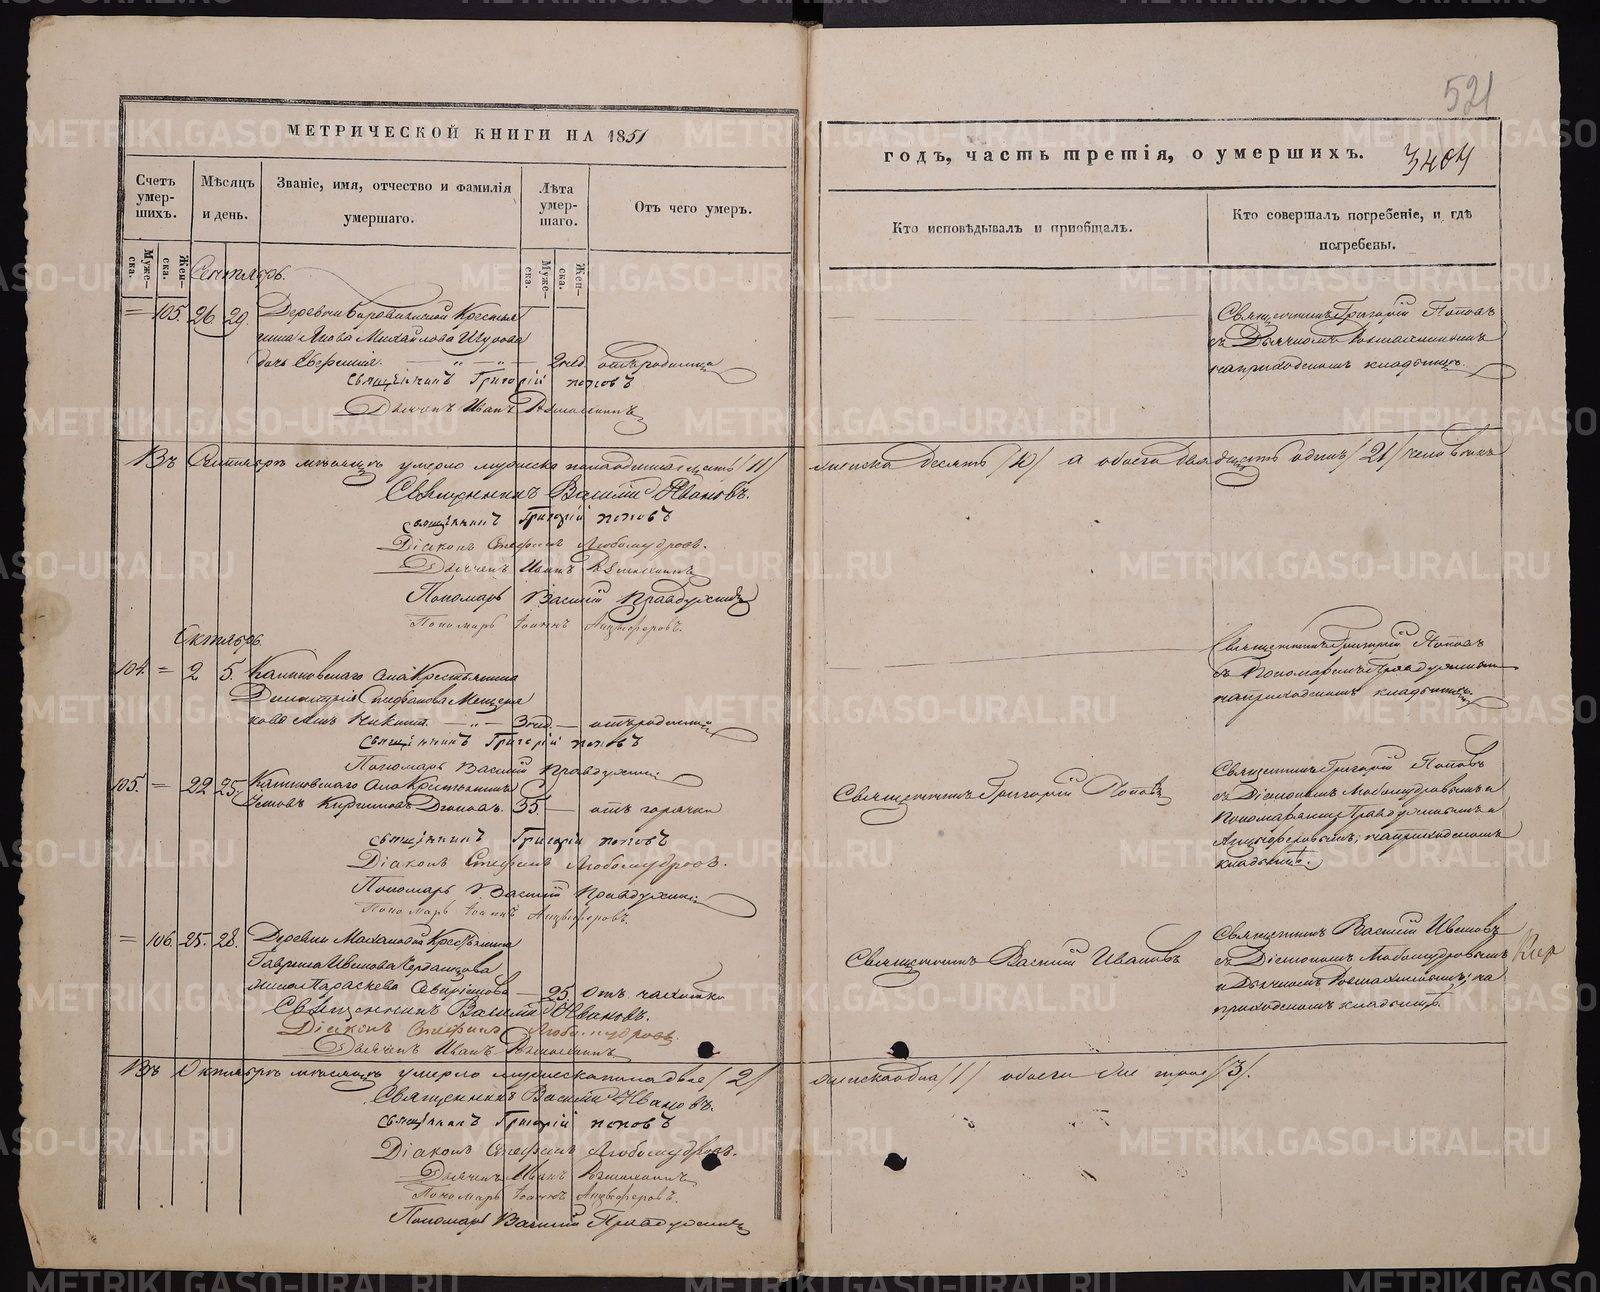 521
МЕТРИЧЕСКОЙ КНИГИ НА 1851
годъ, часть третія, о умершихъ.
3404
Счетъ умершихъ.
Мѣсяцъ и день.
Званіе, имя, отчество и фамилія умершаго.
Лѣта умершаго.
Отъ чего умеръ.
Кто исповѣдывалъ и пріобщалъ.
Кто совершалъ погребеніе, и гдѣ погребены.
Мужеска.
Женска.
Мужеска.
Женска.
Сентябрь.
105. 26 29. Деревни Крестья
нина Якова Михайлова
дочь 2 нед. отъ родимца
Священникъ Григорій Поповъ
съ Дьячкомъ
на приходскомъ кладбищѣ.
священникъ Григорій Поповъ
Дьячекъ Иванъ
Въ Сентябрѣ мѣсяцѣ умерло мужеска пола одинадцать /11/ женска десять /10/ а обоего двадцать одинъ /21/ человѣкъ
Священникъ Василій Ивановъ.
священникъ Григорій Поповъ
Діаконъ Стефанъ Любомудровъ.
Дьячекъ Иванъ
Пономарь Василій Правдухинъ
Пономарь Іоаннъ Анцыферовъ.
Октябрь.
104. 2 5. Села Крестьянина
Димитрія Стефанова
сынъ Никита. 3 нед. отъ родимца
Священникъ Григорій Поповъ
съ Пономаремъ Правдухинымъ
на приходскомъ кладбищѣ.
священникъ Григорій Поповъ
Пономарь Василій Правдухинъ
105. 22 25. Села Крестьянинъ
55. отъ горячки
Священникъ Григорій Поповъ
Священникъ Григорій Поповъ
съ Діакономъ Любомудровымъ и
Пономарями Правдухинымъ и
Анцыферовымъ, на приходскомъ
кладбищѣ.
священникъ Григорій Поповъ
Діаконъ Стефанъ Любомудровъ.
Пономарь Василій Правдухинъ
Пономарь Іоаннъ Анцыферовъ.
106. 25. 28. Деревни Крестьянина
Гавріила Иванова
жена Параскева 25. отъ чахотки
Священникъ Василій Ивановъ
Священникъ Василій Ивановъ
съ Діакономъ Любомудровымъ
и Дьячкомъ на
приходскомъ кладбищѣ.
Священникъ Василій Ивановъ.
Діаконъ Стефанъ Любомудровъ.
Дьячекъ Иванъ
Въ Октябрѣ мѣсяцѣ умерло мужеска пола двое /2/ женска одна /1/ обоего трое /3/.
Священникъ Василій Ивановъ.
священникъ Григорій Поповъ
Діаконъ Стефанъ Любомудровъ.
Дьячекъ Иванъ
Пономарь Іоаннъ Анцыферовъ.
Пономарь Василій Правдухинъ
METRIKI.GASO-URAL.RU